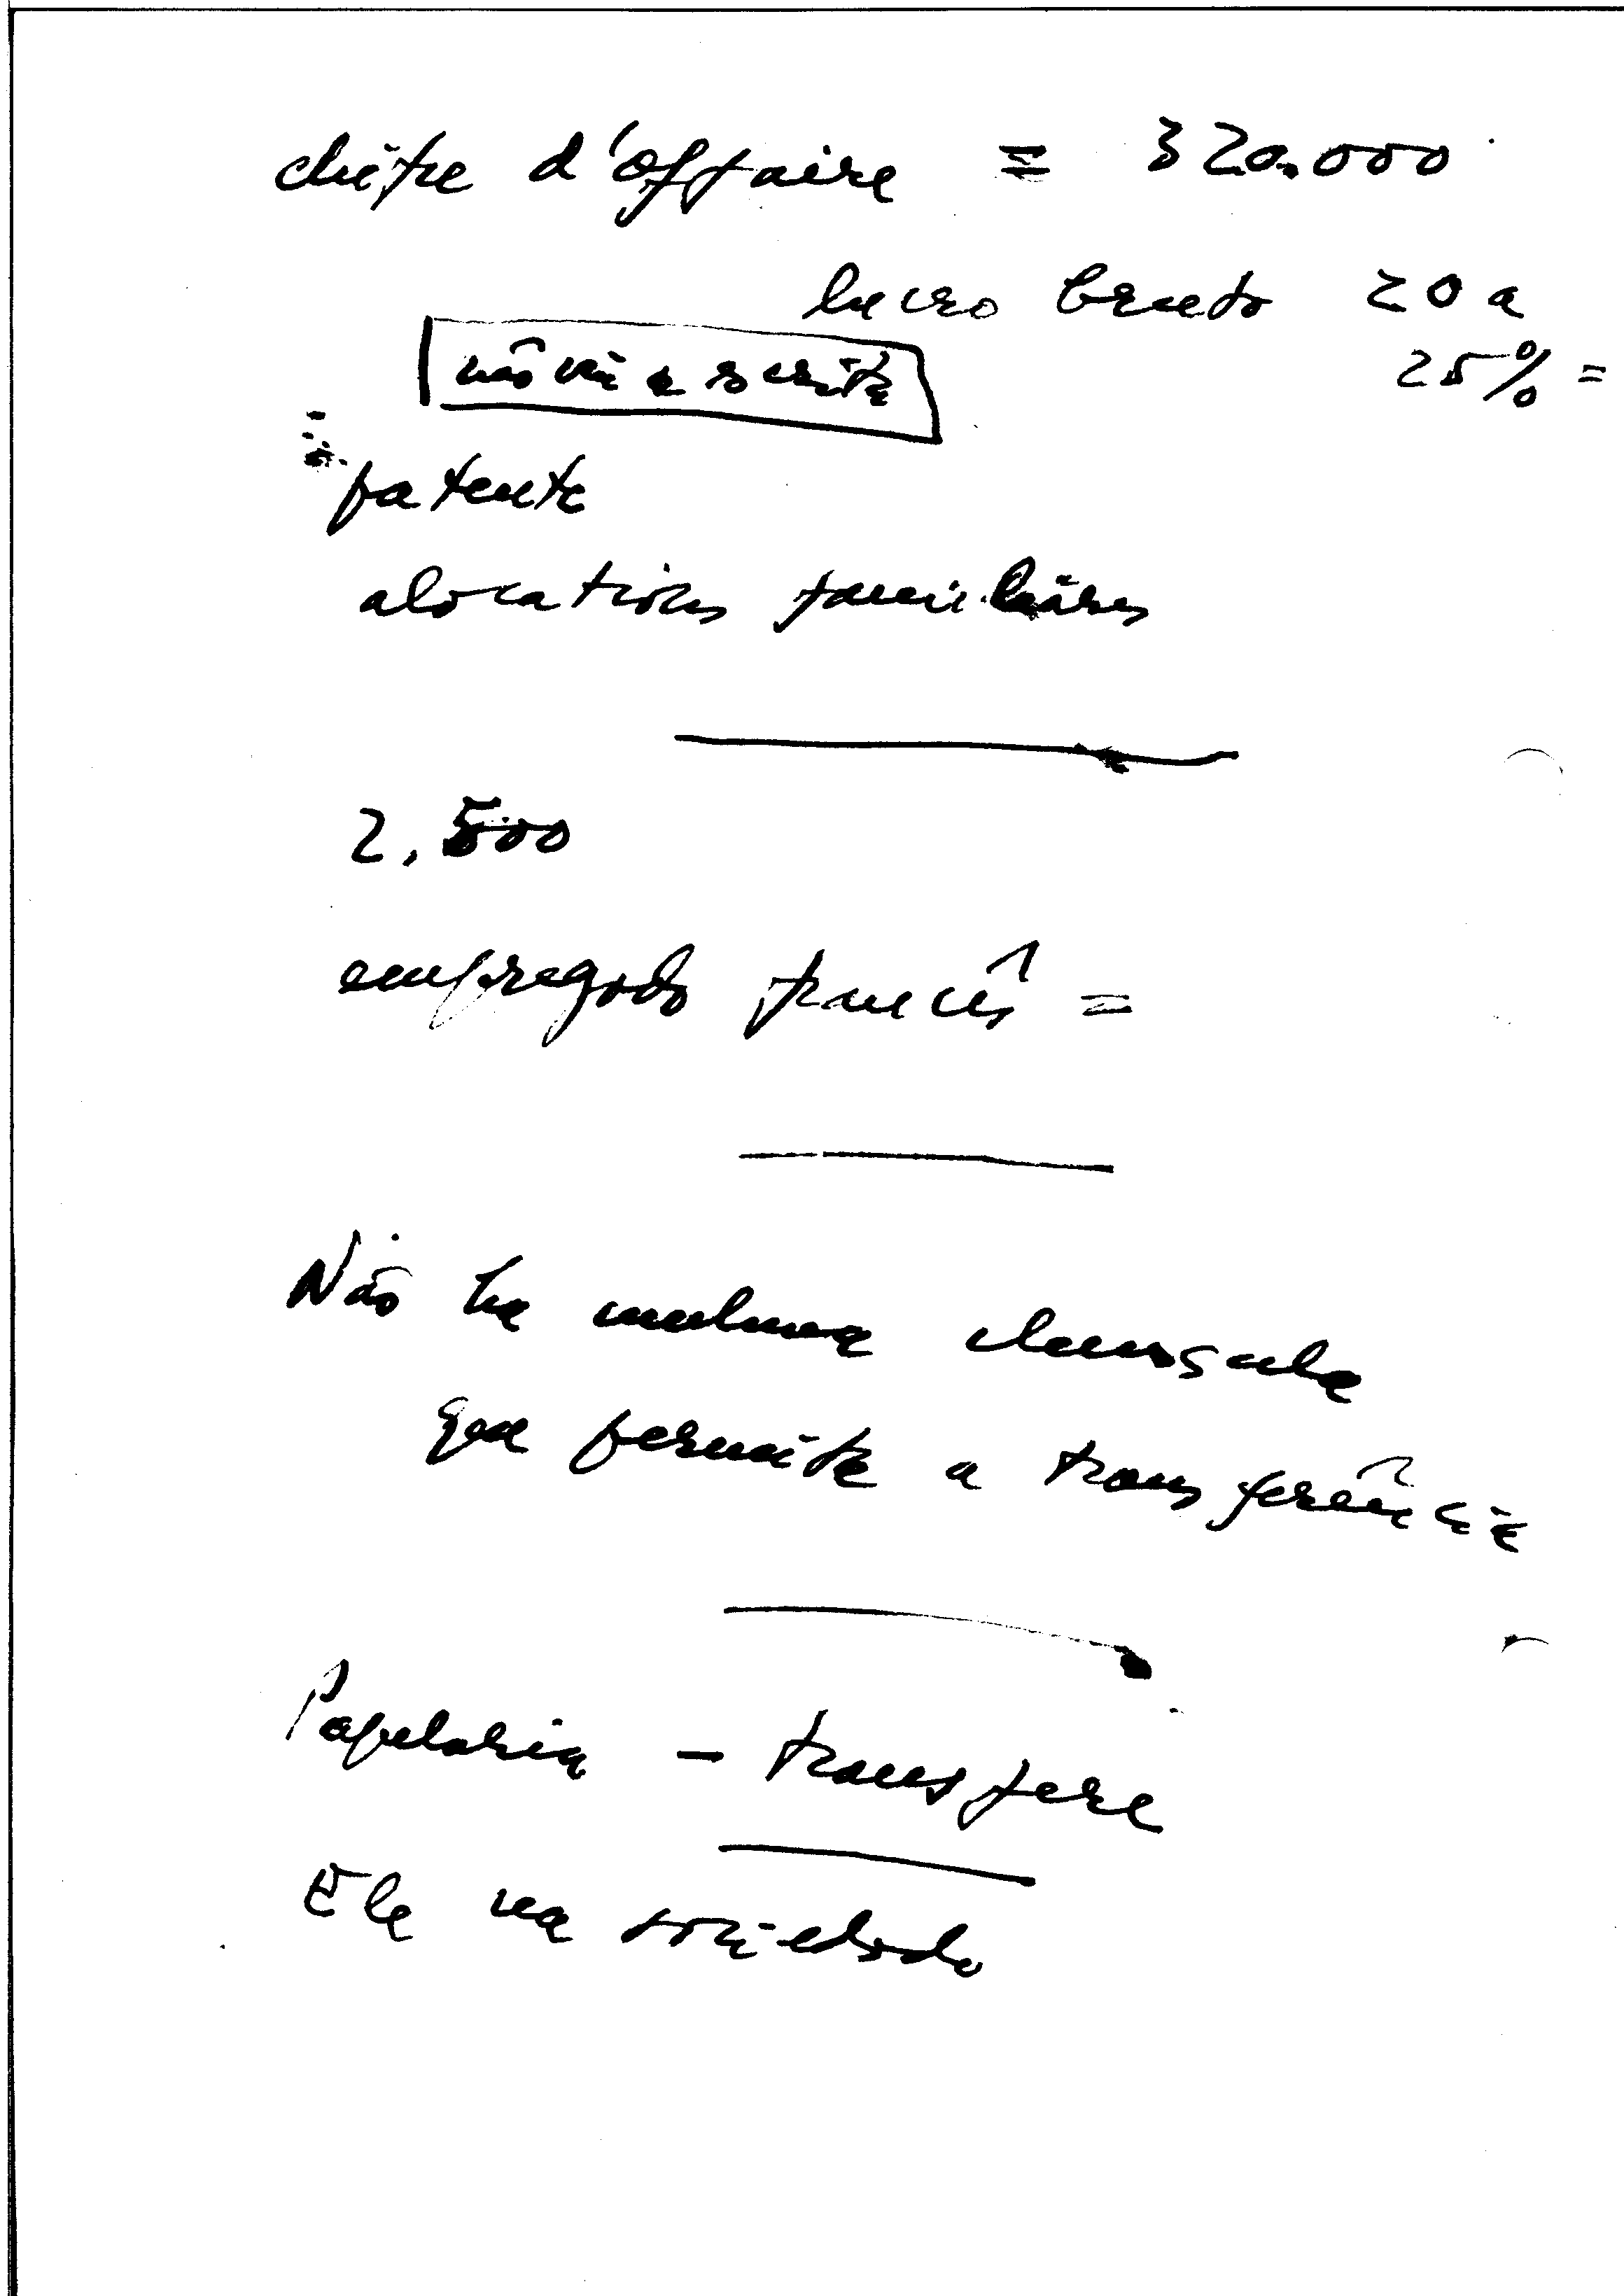 chifre d'affaire = 320.000
lucro bruto 20 a
25% =
não vi a escrita
patente
alocations familiares
2.500
empregado francês =
Não ha nenhuma clausula
que permita a transferência
Papelaria - transfere
Ele na sociedade